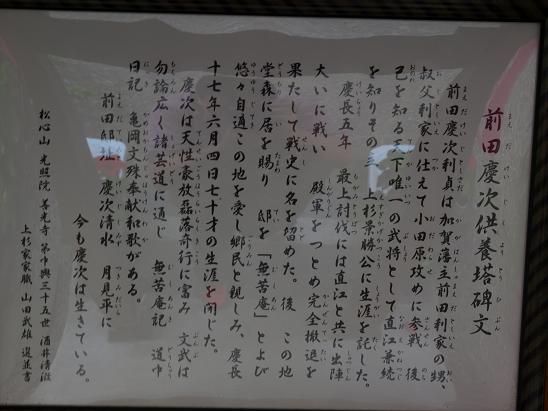 前田慶次供養塔碑文
前田慶次利貞は加賀藩主前田利家の甥、
叔父利家に仕えて小田原攻めに参戦 後
己を知る天下唯一の武将として直江兼続
を知りその主、上杉景勝公に生涯を託した。
慶長五年 最上討伐には直江と共に出陣
大いに戦い 殿軍をつとめ完全撤退を
果たして戦史に名を留めた。後 この地
堂森に居を賜り 邸を「無苦庵」とよび
悠々自適この地を愛し郷民と親しみ、慶長
十七年六月四日七十才の生涯を閉じた。
慶次は天性豪放磊落奇行に富み 文武は
勿論広く諸芸道に通じ 無苦庵記 道中
日記 亀岡文殊奉献和歌がある。
前田邸址 慶次清水 月見平に
今も慶次は生きている。
松心山 光照院 善光寺 第中興三十五世 酒井清滋
上杉家家職 山田武雄 選並書